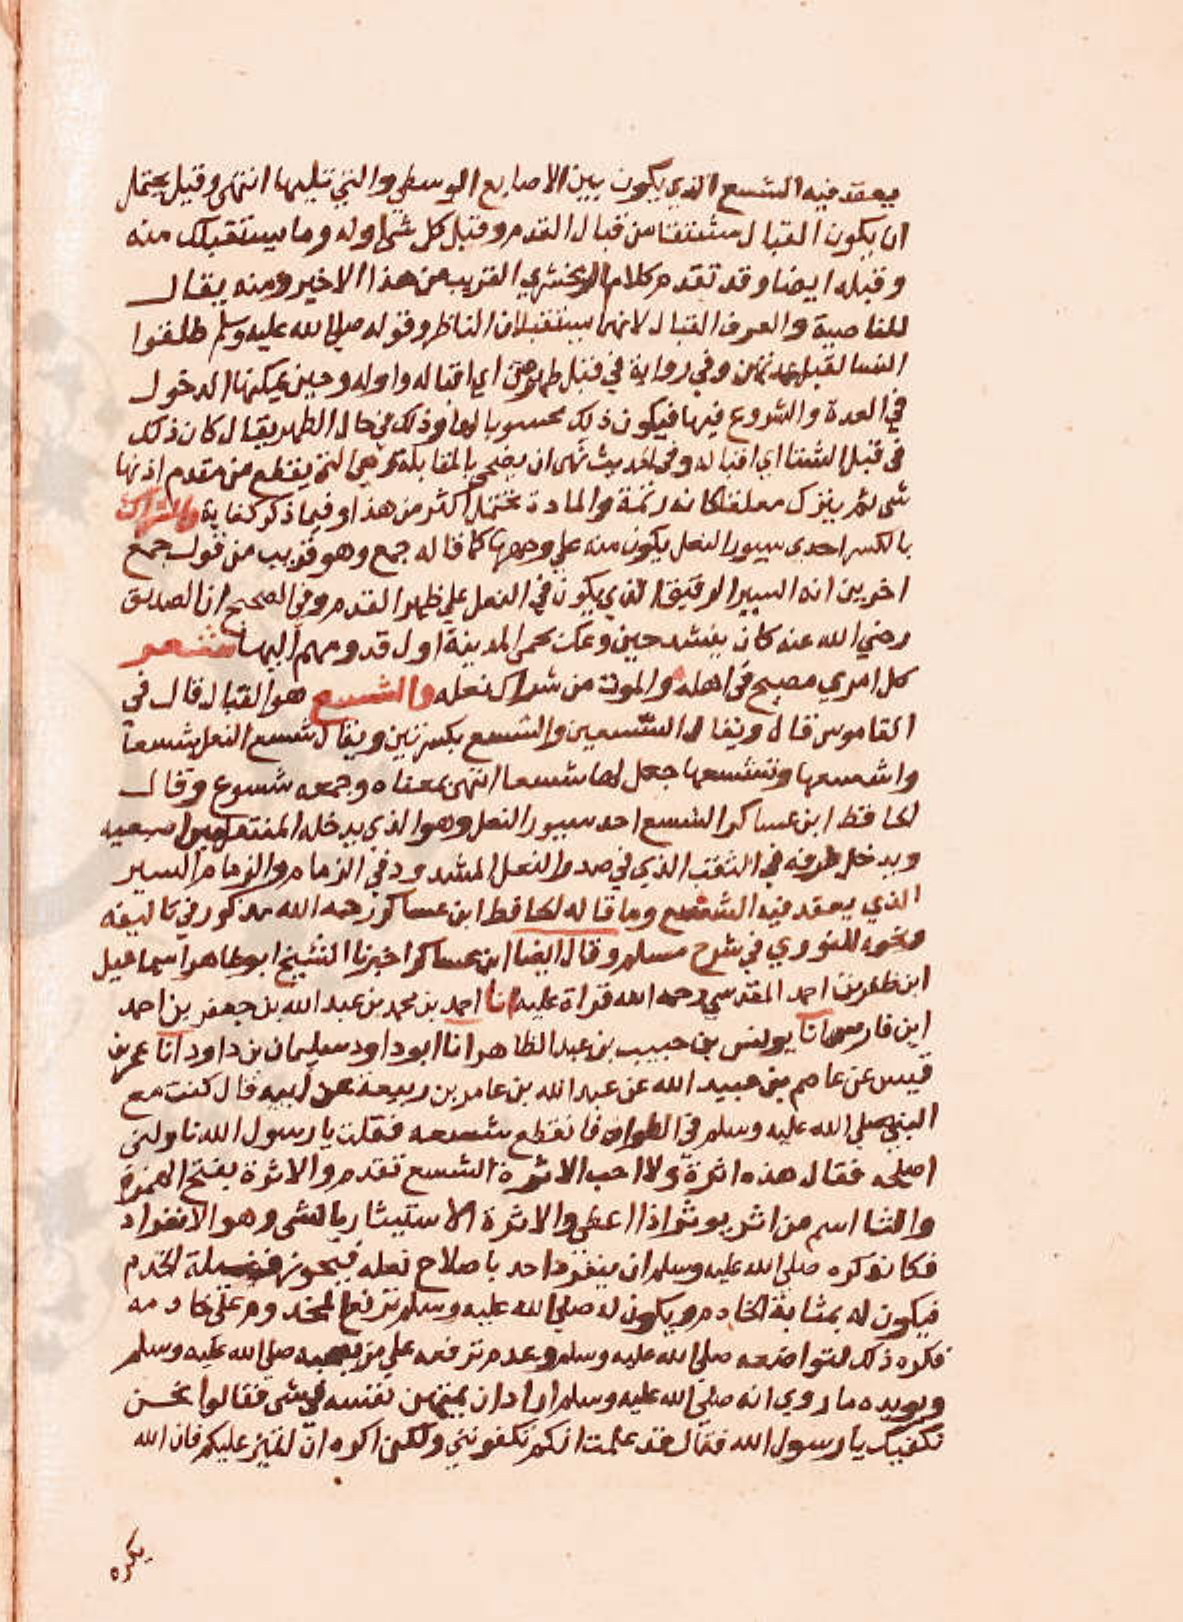 يعقد فيه الشسع الذي يكون بين الاصابع الوسطي والتي تليها انتهى وقيل يحتمل
ان يكون القبال مشتقا من قبال القدم وقبل كل شي اوله وما يستقبلك منه
وقبله ايضا وقد تقدم كلام الزمخشري القريب من هذا الاخير ومنه يقال
للناصية والعرف القبال لانهما يستقبلان الناظر وقوله صلي الله عليه وسلم طلقوا
النسا لقبل عدتهن وفي رواية في قبل طهرهن اي اقباله واوله وحين يمكنها الدخول
في العدة والشروع فيها فيكون ذلك محسوبا لها وذلك في حال الطهر يقال كان ذلك
في قبل الشتا اي اقباله وفي الحديث نهى ان يضحي بالمقابلة وهي التي يقطع من مقدم اذنها
شي ثم يترك معلقا كانه زنمة والمادة تحتمل اكثر من هذا وفيما ذكر كفاية والشراك
بالكسر احدي سيور النعل يكون منه علي وجهها كما قاله جمع وهو قريب من قول جمع
اخرين انه السير الرقيق الذي يكون في النعل علي ظهر القدم وفي الصحيح ان الصديق
رضي الله عنه كان ينشد حين وعك بحمى المدينة اول قدومهم اليها شعر
كل امري مصبح في اهله والموت من شراك نعله والشسع هو القبال قال في
القاموس قال ويقال الشسعين والشسع بكسرتين ويقال شسع النعل شسعا
واشسعها وشسعها جعل لها شسعا انتهى بمعناه وجمعه شسوع وقال
الحافظ ابن عساكر الشسع احد سيور النعل وهو الذي يدخله المنتعل بين اصبعيه
ويدخل طرفه في الثقب الذي في صدر النعل المشدود في الزمام والزمام السير
الذي يعقد فيه الشسع وما قاله الحافظ ابن عساكر رحمه الله مذكور في تاليفه
ونحوه للنووي في شرح مسلم وقال ايضا ابن عساكر اخبرنا الشيخ ابو طاهر اسماعيل
ابن ظفر بن احمد المقدسي رحمه الله قراة عليه انا احمد بن محمد بن عبد الله بن جعفر بن احمد
ابن فارس انا يونس بن حبيب بن عبد الظاهر انا ابو داود سليمان بن داود انا عمر بن
قيس عن عاصم بن عبيد الله عن عبد الله بن عامر بن ربيعة عن ابيه قال كنت مع
النبي صلي الله عليه وسلم في الطواف فانقطع شسعه فقلت يا رسول الله ناولني
اصلحه فقال هذه اثرة ولا احب الاثرة الشسع تقدم والاثرة بفتح الهمزة
والثا اسم من اثر يوثر اذا اعطى والاثرة الاستيثار بالشى وهو الانفراد
فكانه كره صلي الله عليه وسلم ان ينفرد احد باصلاح نعله فيحوز فضيلة الخدم
فيكون له بمثابة الخادم ويكون له صلي الله عليه وسلم ترفع المخدوم علي خادمه
فكره ذلك لتواضعه صلي الله عليه وسلم وعدم ترفعه علي من يصحبه صلي الله عليه وسلم
ويويده ما روي انه صلي الله عليه وسلم اراد ان يمتهن نفسه في شى فقالوا نحن
نكفيك يا رسول الله فقال قد علمت انكم تكفونني ولكن اكره ان اتميز عليكم فان الله
يكره